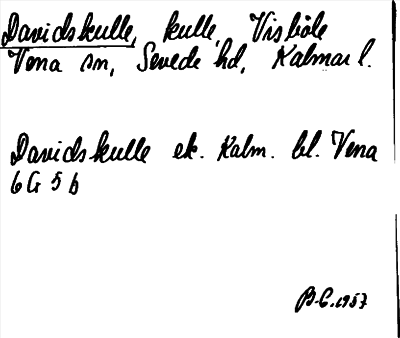 Davidskulle, kulle, Visböle
Vena sn, Sevede hd, Kalmar l.
Davidskulle ek. Kalm. bl. Vena
6 G 5 b
B-C. 1957